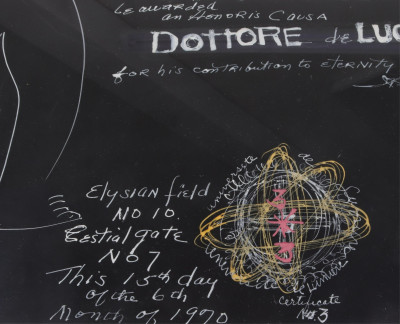 be awarded
an Honoris Causa
DOTTORE de LUC
for his contribution to ETERNITY
Elysian field
NO 10
Bestial gate
NO 7
This 15th day
of the 6th
Month of 1970
universite de
Certificate
No 3